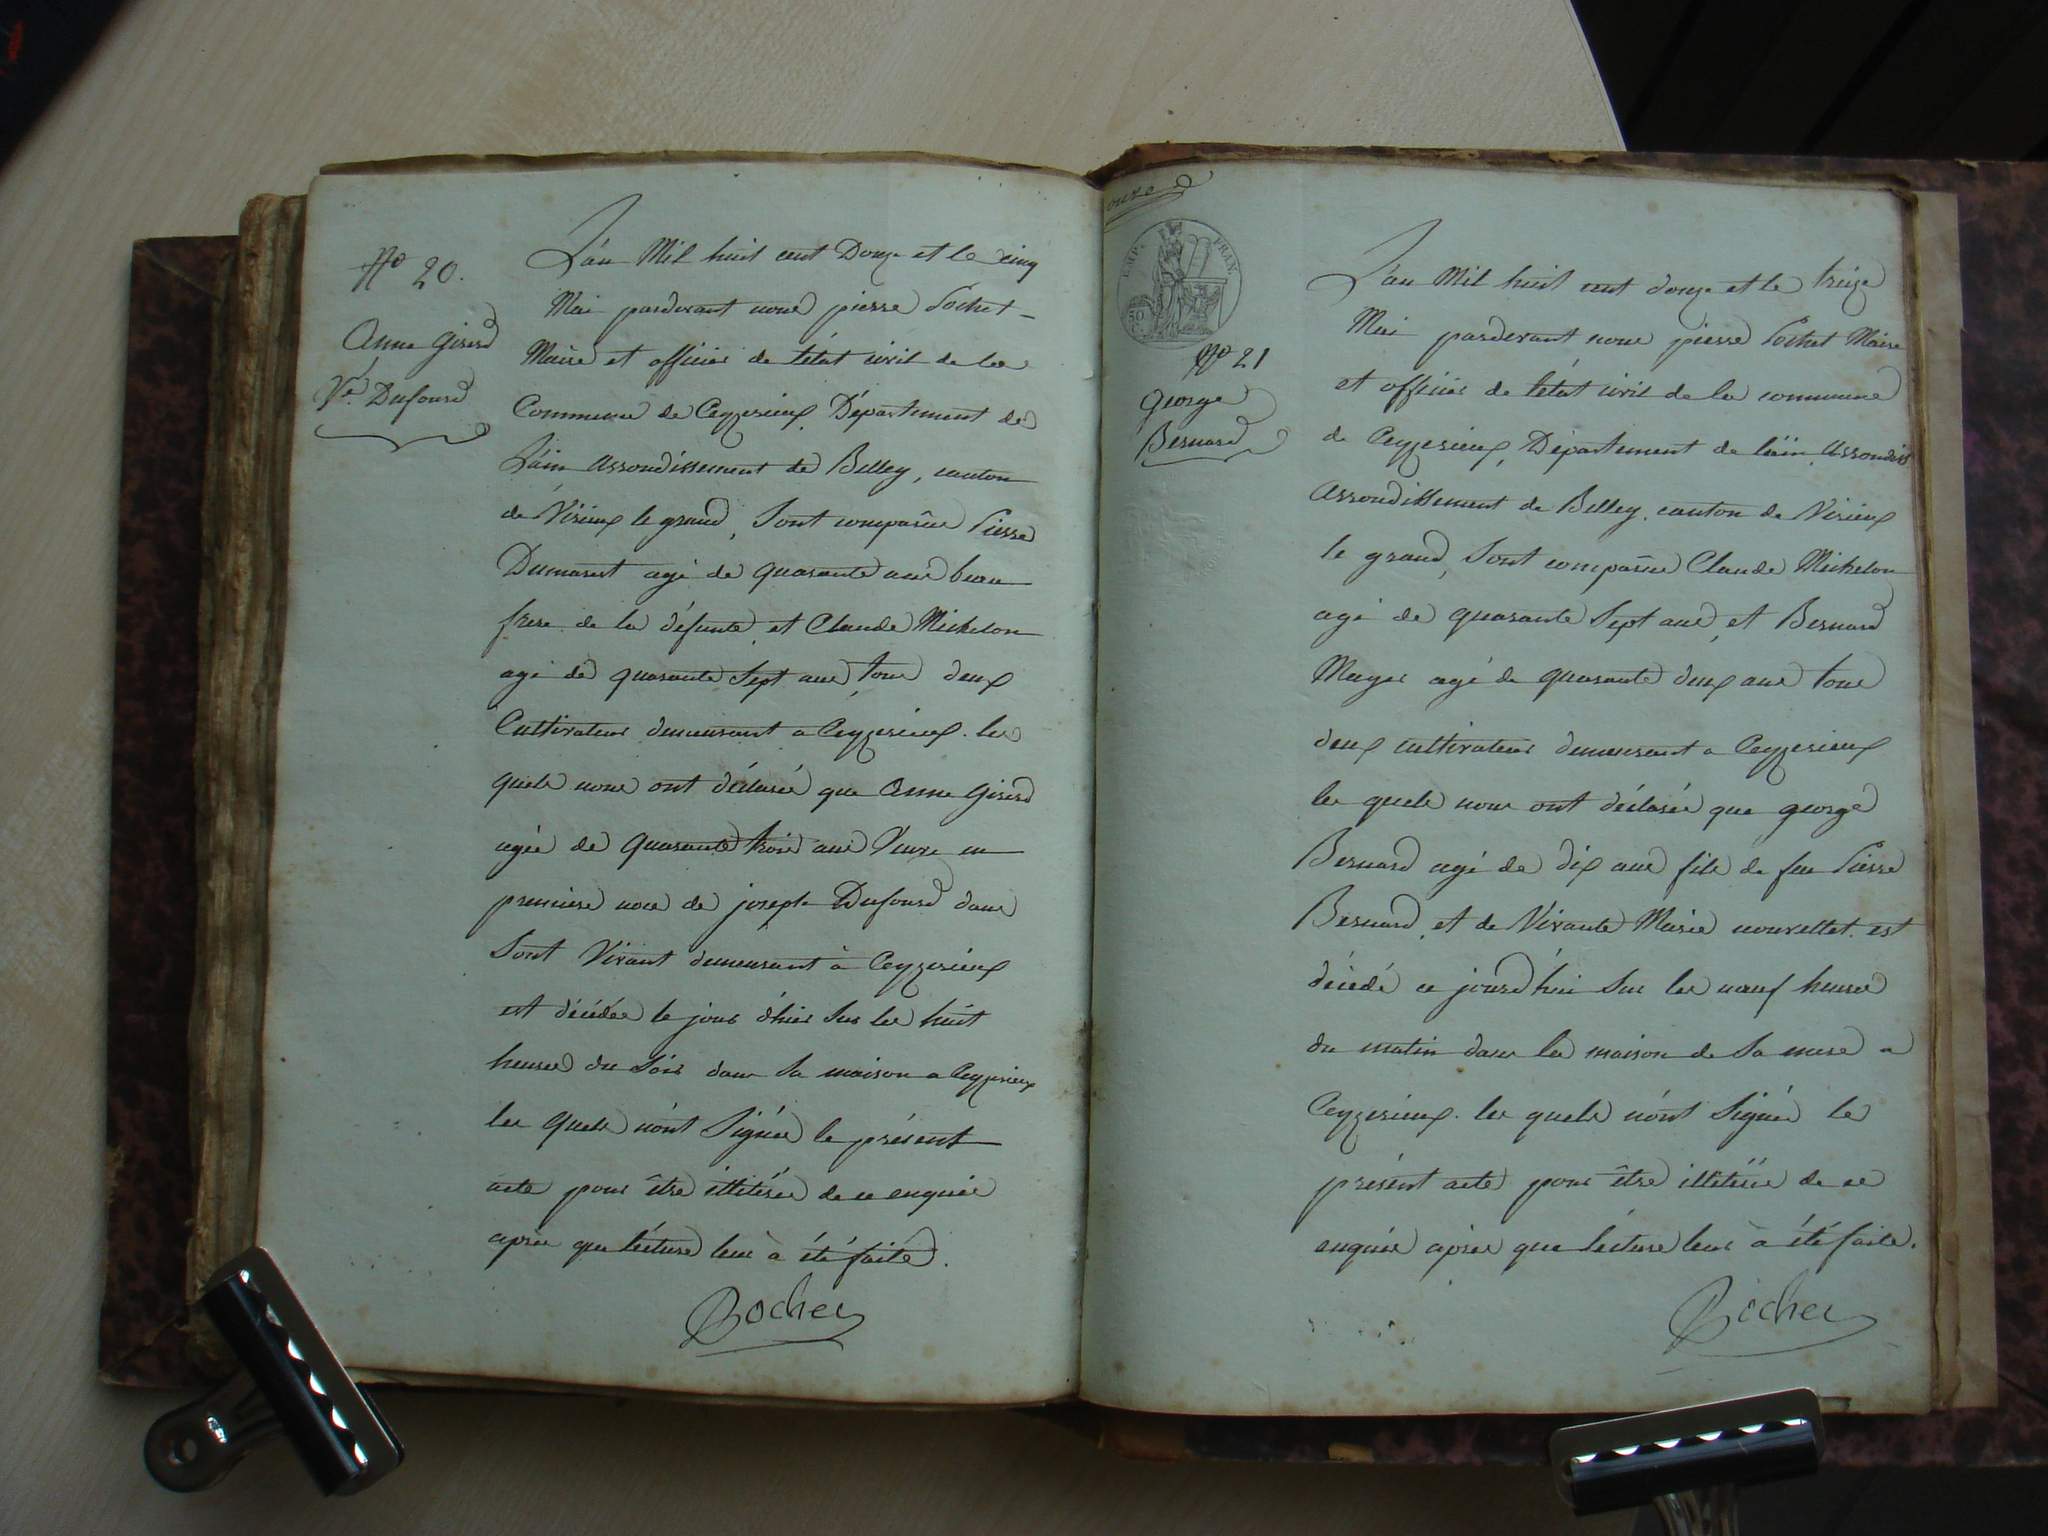 N° 20.
Anne Girerd
Ve. Dufourd
L'an Mil huit cent Douze et le cinq
Mai pardevant nous pierre Pochet
Maire et officier de l'état civil de la
Commune de Ceyzerieux, Département de
L'ain arrondissement de Belley, canton
de Virieux le grand, Sont comparus Pierre
Dumarest agé de quarante ans beau
frere de la défunte, et Claude Michelon
agé de quarante Sept ans, tous deux
Cultivateurs demeurant a Ceyzerieux. les
quels nous ont déclarés que Anne Girerd
agée de quarante trois ans Veuve en
premiere noce de joseph Dufourd dans
Sont Vivant demeurant à Ceyzerieux
est décédée le jour d'hier Sur les huit
heures du Soir dans Sa maison a Ceyzerieux
les quels n'ont Signés le présent
acte pour être illitérés de ce enquis
après que lécture leur à été faite.
Pochet
onze
EMP. FRAN.
50
N° 21
George
Bernard
L'an Mil huit cent douze et le treize
Mai pardevant nous pierre Pochet Maire
et officier de l'état civil de la commune
de Ceyzerieux, Département de l'ain, arrondis
arrondissement de Belley, canton de Virieux
le grand, Sont comparus Claude Michelon
agé de quarante Sept ans, et Bernard
agé de quarante deux ans tous
deux cultivateurs demeurant a Ceyzerieux
les quels nous ont déclarés que george
Bernard agé de dix ans fils de feu Pierre
Bernard, et de Vivante Marie nouvellet. est
décédé ce jourd'hui Sur les neuf heures
du matin dans la maison de Sa mere a
Ceyzerieux. les quels n'ont Signés le
présent acte pour être illitérés de ce
enquis après que lécture leur à été faite.
Pochet